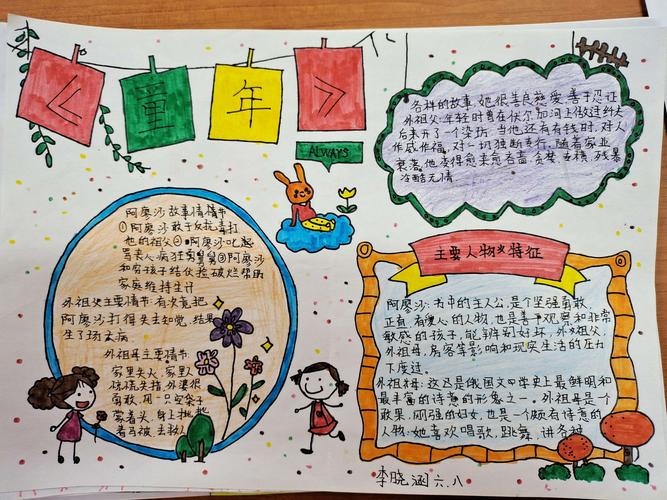 《童年》
ALWAYS
各样的故事,她很善良慈爱,善于忍让
外祖父:年轻时曾在伏尔加河上做过纤夫
后来开了一个染坊,当他还有有钱时,对人
作威作福,对一切独断专行,随着家业
衰落,他变得愈来愈吝啬,贪婪,专横,残暴
冷酷无情
阿廖沙故事情情节
①阿廖沙敢于反抗毒打
他的祖父②阿廖沙吃起
③阿廖沙
和穷孩子结伙捡破烂帮助
家庭维持生计
外祖父主要情节:有次竟把
阿廖沙打得失去知觉,结果
生了场大病
外祖母主要情节:
家里失火,家里人
惊慌失措,外婆很
勇敢,用一只空袋子
蒙着头,身上披
着马被,去救火
主要人物及特征
阿廖沙:书中的主人公,是个坚强勇敢,
正直,有爱心的人物,也是善于观察和非常
敏感的孩子,能辨别好坏,外父祖父,
外祖母,房客等影响和现实生活的压力
下度过.
外祖母:这乃是俄国文学史上最鲜明和
最丰富的诗意的形象之一,外祖母是个
果,刚强的妇女,也是一个颇有诗意的
人物:她喜欢唱歌,跳舞,讲各种
李晓涵六.八